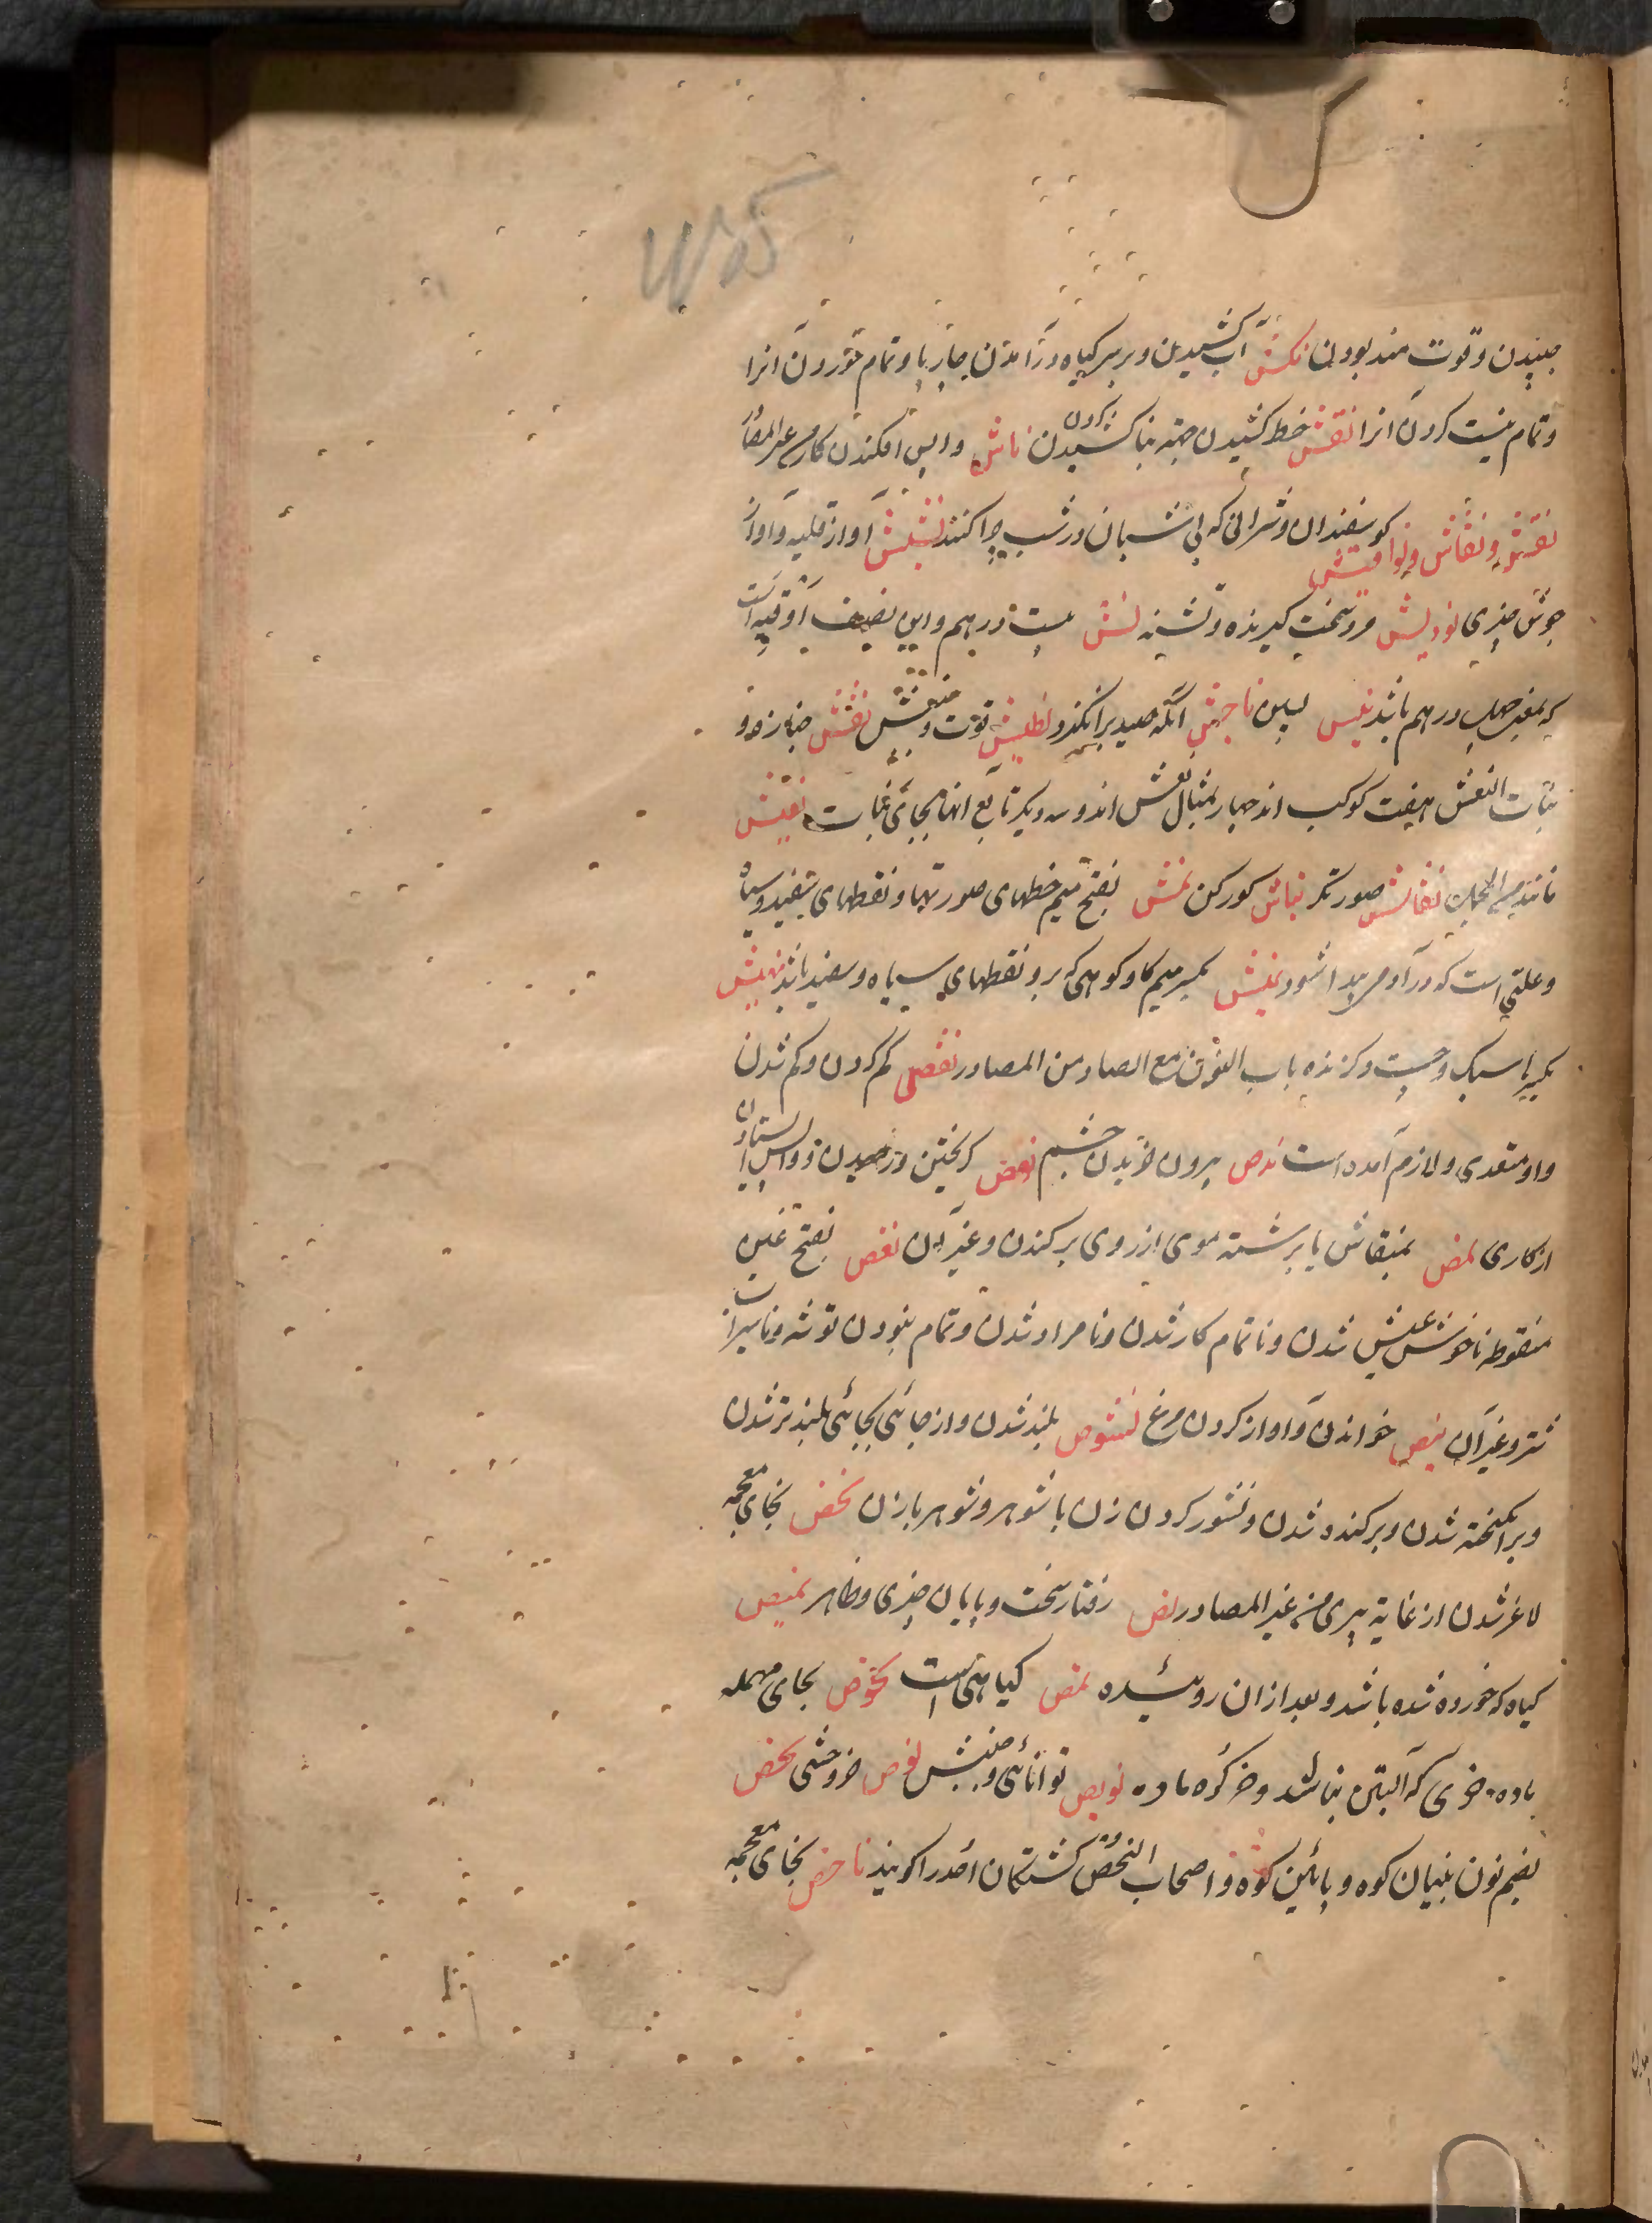 جنبیدن و قوت مند بودن نکش آب کشیدن و بر سر کیاه در آمدن چارپا و تمام خوردن آنرا
و تمام نیست کردن انرا نقش خط کشیدن جهته بنا کشیدن ناش واپس افکندن کار من غیر المصادر
نفش و نفاش و نوافش کوسفندان و شترانی که بی شبان در شب چرا کنند نشیش آواز قلیه و آواز
جوش چیزی نودلیش مرد سخت کیرنده و تشنه نش بیست درهم و این نصف اوقیه است
که بمعنی چهل درهم باشد ناجش آنکه صید برانکیزد نطیش قوت و جنبش نعش جنازه و
بنات النعش هفت کوکب اند چهار بمثال نعش اند و سه دیکر تابع انها بجای بنات نقیش
مانند نقاش صورتکر نباش کورکن نمش بفتح میم خطهای صورتها و نقطهای سفید و سیاه
و علتی است که در آدم پیدا شود نمش بکسر میم کاو کوهی که برو نقطهای سیاه و سفید باشد نهیش
سبک و چست و کزنده باب النون مع الصاد من المصادر نقص کم کردن و کم شدن
و او متعدی و لازم آمده است ندص بیرون خزیدن چشم نوص کریختن و واپس ایستادن
از کاری نمص بمنقاش یا برشته موی از روی برکندن و غیر آن نغص بفتح غین
منقوطه ناخوش عیش شدن و ناتمام کار شدن و نامراد شدن و تمام نبودن توشه و ناسیراب
شتر و غیر آن نبص خواندن و آواز کردن مرغ نشوص بلند شدن و از جائی بجائی بلندتر شدن
و برانکیخته شدن و برکنده شدن و نشوز کردن زن با شوهر و شوهر با زن نخص بخای معجمه
لاغر شدن از غایة پیری من غیر المصادر نص رفتار سخت و پایان چیزی و ظاهر نمیص
کیاه که خورده شده باشد و بعد ازان روئیده نمص کیاهی است نحوص بحای مهمله
ماده خری که آبستن نباشد و خر کره ماده نویص توانائی و جنبش نوص خر وحشی نحص
بضم نون بنیان کوه و پائین کوه و اصحاب النحص کشتکان احد را کویند ناخص بخای معجمه